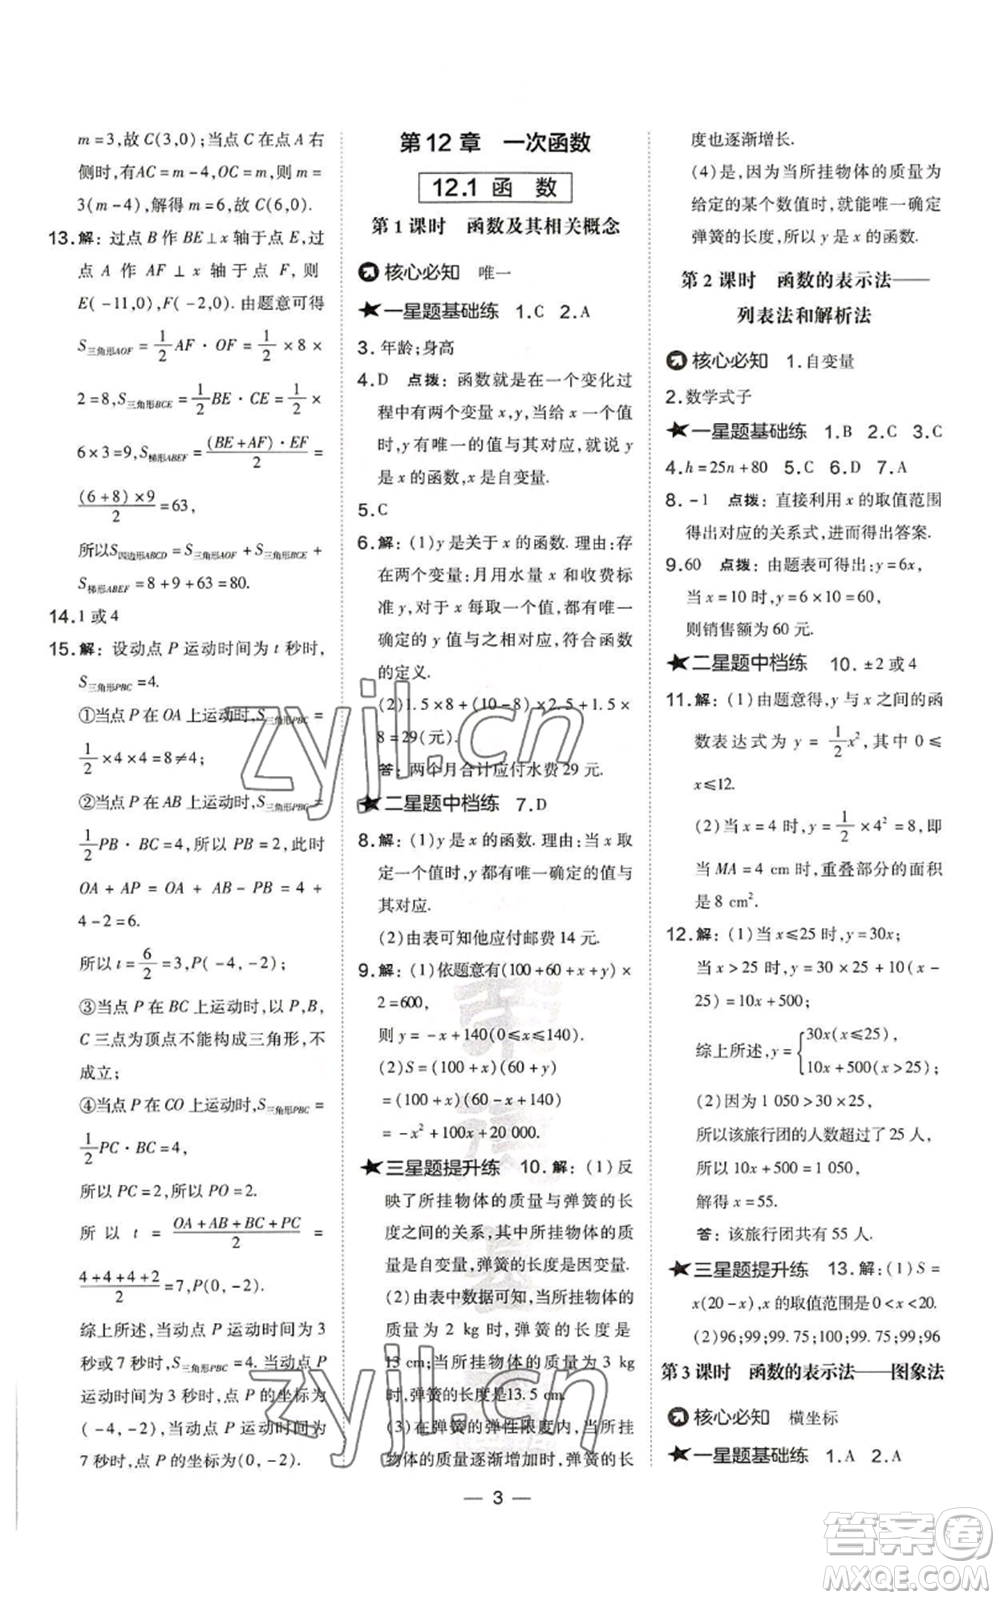 m=3,故 C(3,0);当点 C 在点 A 右
侧时,有AC=m-4,BC=m,则 m=
3(m-4),解得 m=6,故 C(6,0).
13.解:过点 B 作 BE⊥x 轴于点 E,过
点 A 作 AF⊥x 轴于点 F,则
E(-11,0),F(-2,0).由题意可得
S三角形AOF=1/2 AF·OF=1/2×8×
2=8,S三角形BCE=1/2 BE·CE=1/2×
6×3=9,S梯形ABEF=(BE+AF)·EF/2=
(6+8)×9/2=63,
所以S四边形ABCD=S三角形AOF+S三角形BCE+
S梯形ABEF=8+9+63=80.
14.1 或 4
15.解:设动点 P 运动时间为 t 秒时,
S三角形PBC=4.
①当点 P 在 OA 上运动时,S三角形PBC=
1/2×4×4=8≠4;
②当点 P 在 AB 上运动时,S三角形PBC=
1/2 PB·BC=4,所以 PB=2,所以
OA+AP=OA+AB-PB=4+
4-2=6.
所以 t=6/2=3,P(-4,-2);
③当点 P 在 BC 上运动时,以 P,B,
C 三点为顶点不能构成三角形,不
成立;
④当点 P 在 CO 上运动时,S三角形PBC=
1/2 PC·BC=4,
所以 PC=2,所以 PO=2.
所以 t=(OA+AB+BC+PC)/2=
(4+4+4+2)/2=7,P(0,-2).
综上所述,当动点 P 运动时间为 3
秒或7秒时,S三角形PBC=4.当点 P
运动时间为 3 秒时,点 P 的坐标为
(-4,-2);当点 P 运动时间为
7 秒时,点 P 的坐标为(0,-2).
第 12 章 一次函数
12.1 函 数
第 1 课时 函数及其相关概念
核心必知 唯一
一星题基础练 1.C 2.A
3.年龄;身高
4.D 点拨:函数就是在一个变化过
程中有两个变量 x,y,当给 x 一个值
时,y 有唯一的值与其对应,就说 y
是 x 的函数,x是自变量.
5.C
6.解:(1)y 是关于 x 的函数.理由:存
在两个变量:月用水量 x 和收费标
准 y,对于 x 每取一个值,都有唯一
确定的 y 值与之对应,符合函数
的定义.
(2)1.5×8+(10-8)×2.5+1.5×
8=29(元).
答:两个月合计应付水费 29 元.
二星题中档练 7.D
8.解:(1)y 是 x 的函数.理由:当 x 取
定一个值时,y 都有唯一确定的值与
其对应.
(2)由表可知他应付邮费 14 元.
9.解:(1)依题意有(100+60+x+y)×
2=600,
则 y=-x+140(0≤x≤140).
(2)S=(100+x)(60+y)
=(100+x)(-x+200)
=-x²+100x+20 000.
三星题提升练 10.解:(1)反
映了所挂物体的质量与弹簧的长
度之间的关系,其中所挂物体的质
量是自变量,弹簧的长度是因变量.
(2)由表中数据可知,当所挂物体的
质量为 2 kg 时,弹簧的长度是
13 cm;当所挂物体的质量为 3 kg
时,弹簧的长度是13.5 cm.
(3)在弹簧的弹性限度内,当所挂
物体的质量逐渐增加时,弹簧的长
度也逐渐增长.
(4)是,因为当所挂物体的质量为
给定的某个数值时,就有唯一确定
弹簧的长度,所以 y 是 x 的函数.
第 2 课时 函数的表示法——
列表法和解析法
核心必知 1.自变量
2.数学式子
一星题基础练 1.B 2.C 3.C
4.h=25n+80 5.C 6.D 7.A
8.-1 点拨:直接利用 x 的取值范围
得出对应的关系式,进而得出答案.
9.60 点拨:由题表可得出:y=6x,
当 x=10 时,y=6×10=60,
则销售额为 60 元.
二星题中档练 10.±2 或 4
11.解:(1)由题意得,y 与 x 之间的函
数表达式为 y=1/2x²,其中 0≤
x≤12.
(2)当 x=4 时,y=1/2×4²=8,即
当 MA=4 cm 时,重叠部分的面积
是 8 cm².
12.解:(1)当 x≤25 时,y=30x;
当 x>25 时,y=25×30+10(x-
25)=10x+500;
综上所述,y={30x(x≤25),
10x+500(x>25);
(2)因为 1 050>30×25,
所以该旅行团的人数超过了 25 人,
所以 10x+500=1 050,
解得 x=55.
答:该旅行团共有 55 人.
三星题提升练 13.解:(1)S=
x(20-x),x 的取值范围是 0<x<20.
(2)96;99;99.75;100;99;96
第 3 课时 函数的表示法——图象法
核心必知 横坐标
一星题基础练 1.A 2.A
— 3 —
zyjl.cn
zyjl.cn
答案圈
MXQE.COM